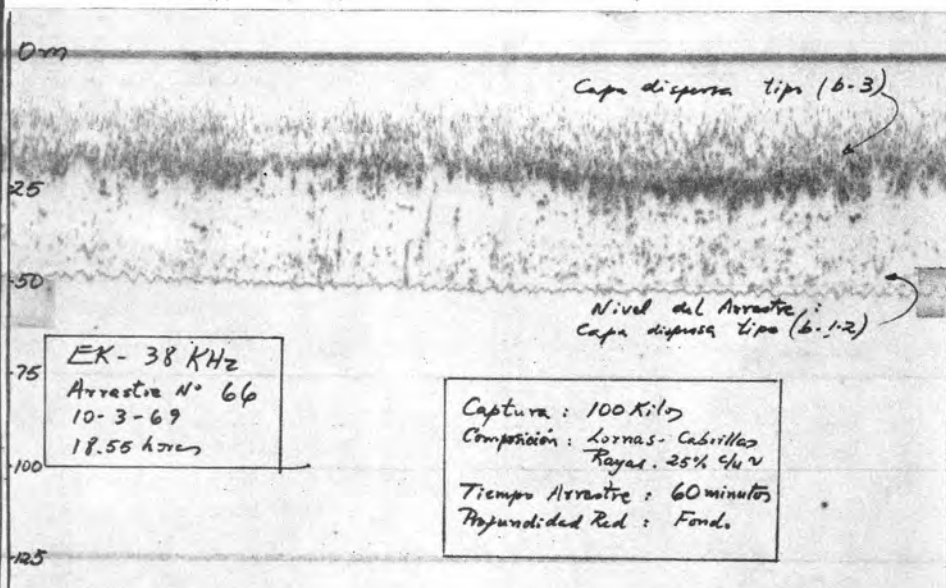 0m
Capa dispersa tipo (b-3)
25
50
Nivel del Arrastre:
Capa dispersa tipo (b-1-2)
EK- 38 KHz
Arrastre N° 66
10-3-69
18.55 horas
75
100
125
Captura: 100 Kilos
Composición: Lornas- Cabrillas
Rayas. 25% c/u
Tiempo Arrastre: 60 minutos
Profundidad Red: Fondo